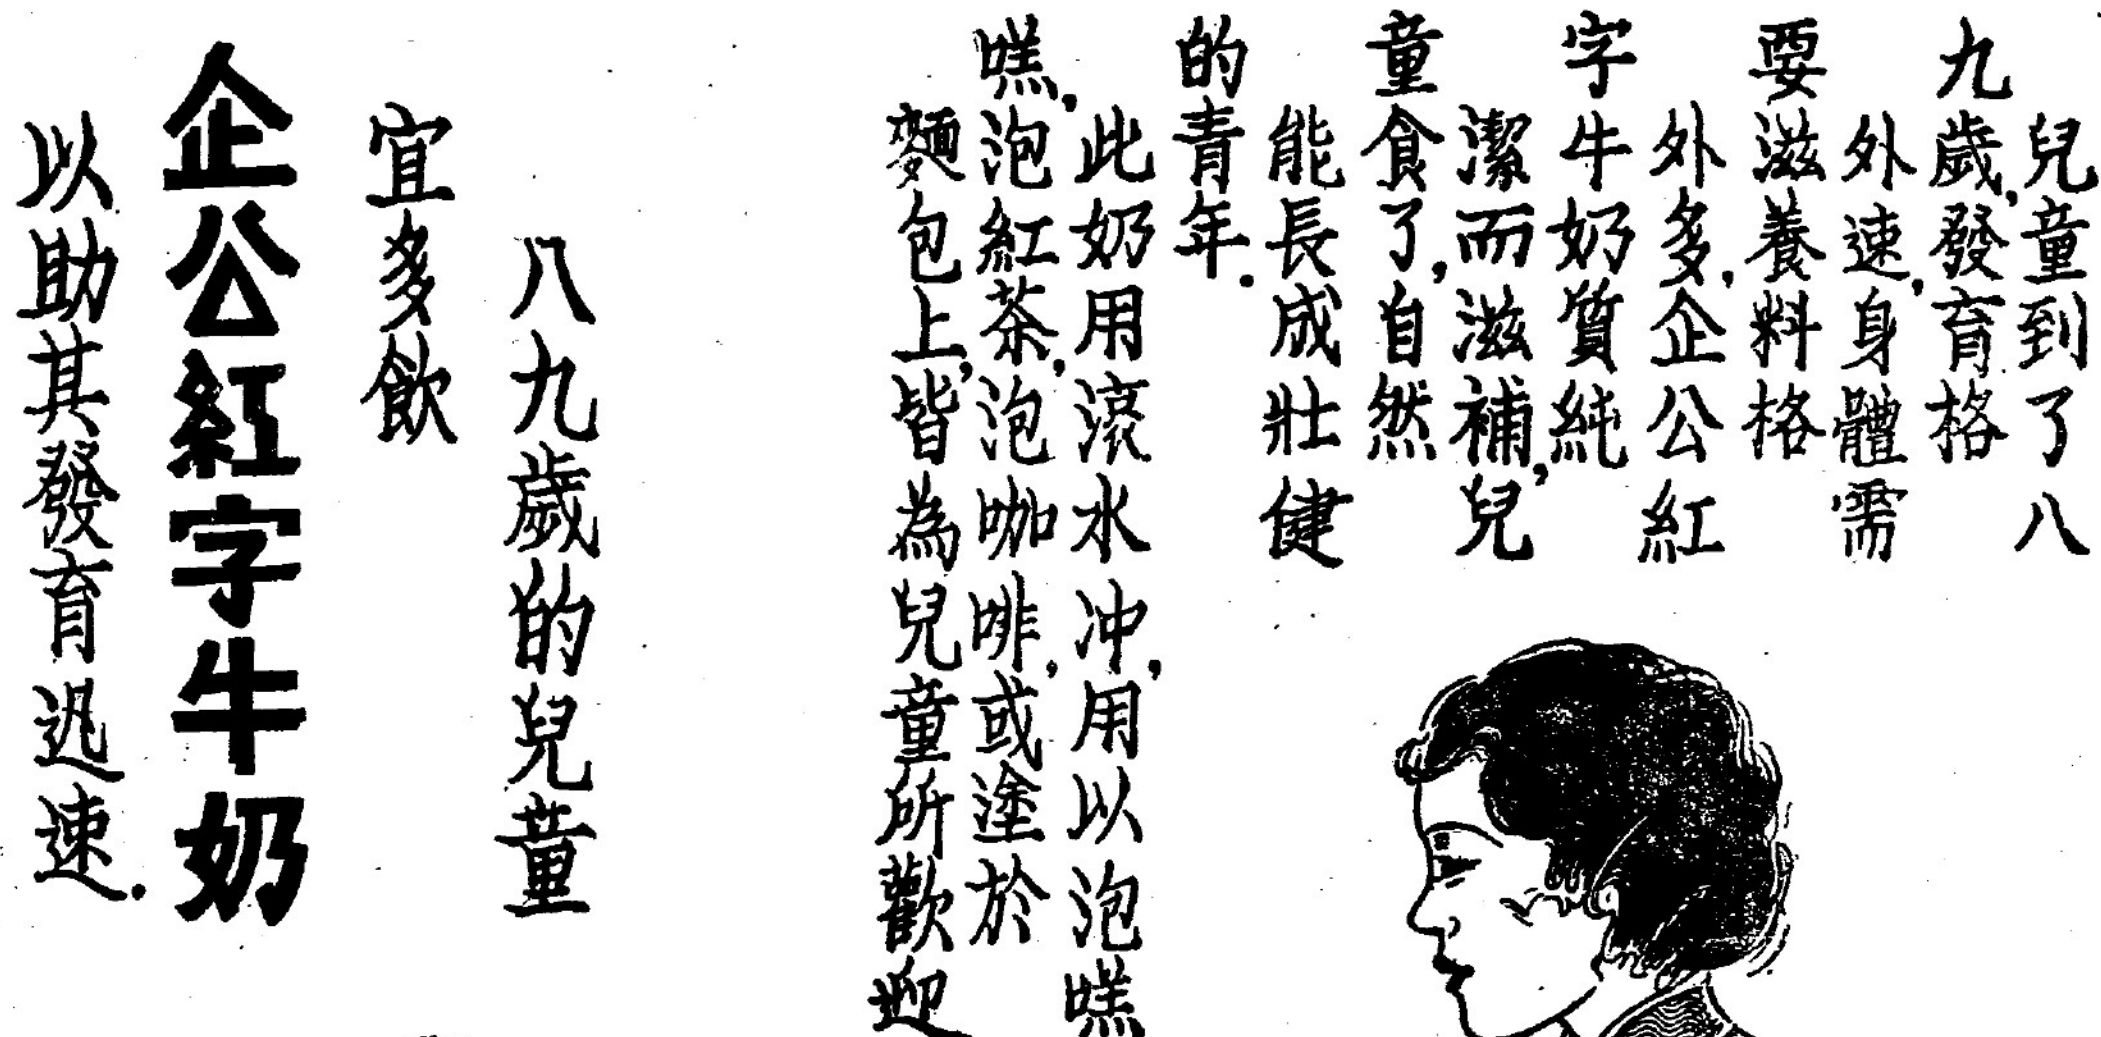 兒童到了八
九歲,發育格
外速,身體需
要滋養料格
外多,企公紅
字牛奶質純
潔而滋補,兒
童食了,自然
能長成壯健
的青年.
此奶用滚水冲,用以泡
泡紅茶,泡咖啡,或塗於
麵包上,皆為兒童所歡迎
八九歲的兒童
宜多飲
企公紅字牛奶
以助其發育迅速.